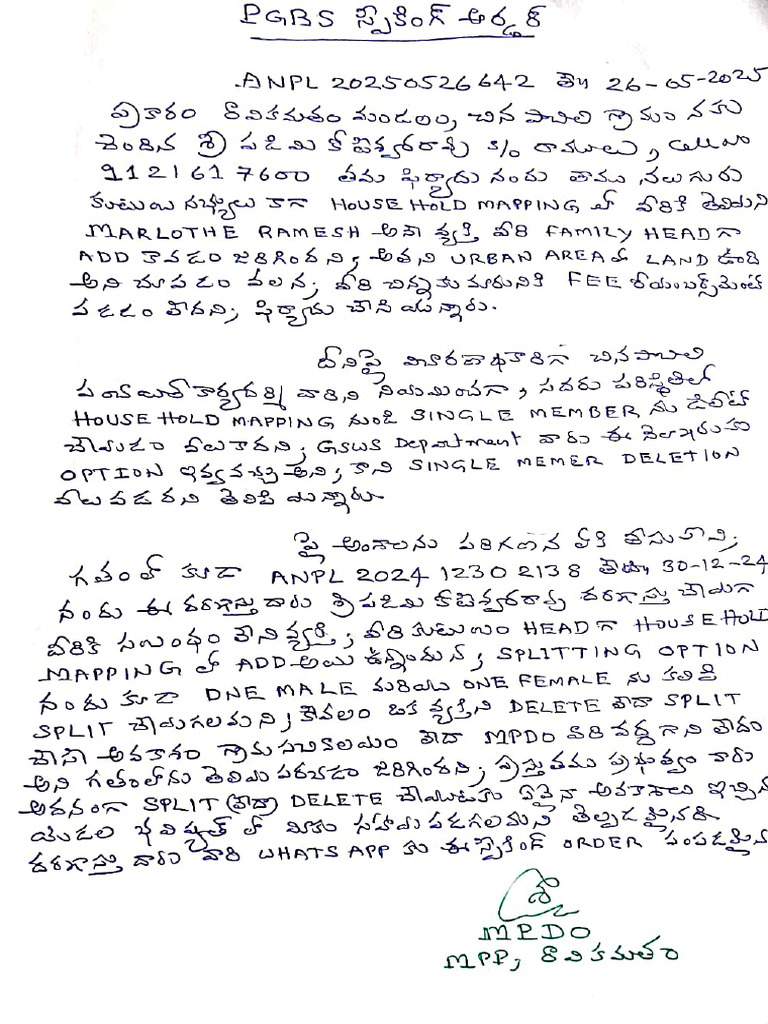 PGRS స్పీకింగ్ ఆర్డర్
ANPL 20250526642 తేది 26-05-2025
ప్రకారం రావికమతం మండలం, చిన పాచిలి గ్రామం నకు
చెందిన శ్రీ పడిమి కోటేశ్వరరావు S/o రాములు, Cell No
9121617600 తమ ఫిర్యాదు నందు తాము నలుగురు
కుటుంబ సభ్యులు కాగా HOUSE HOLD MAPPING లో వీరికి తెలియని
MARLOTHE RAMESH అనే వ్యక్తి వీరి FAMILY HEAD గా
ADD కావడం జరిగిందని, అతని URBAN AREA లో LAND ఉంది
అని చూపడం వలన, వీరి చిన్న కుమారునికి FEE రీయంబర్స్‌మెంట్
పడడం లేదని, ఫిర్యాదు చేసి యున్నారు.
దీనిపై విచారణాధికారిగా చినపాచిలి
పంచాయితీ కార్యదర్శి వారిని నియమించగా, సదరు పరిస్థితిలో
HOUSE HOLD MAPPING నుండి SINGLE MEMBER ను డిలీట్
చేయుడం వీలుకాదని, GSWS Department వారు ఈ మేరకు
OPTION ఇవ్వవచ్చు అని, కాని SINGLE MEMER DELETION
వీలు పడదని తెలిపి యున్నారు
పై అంశాలను పరిగణన లోకి తీసుకొని,
గతంలో కూడా ANPL 2024 1230 2138 తేది 30-12-24
నందు ఈ దరఖాస్తు దారు శ్రీ పడిమి కోటేశ్వరరావు దరఖాస్తు చేయగా
వీరికి సంబంధం లేని వ్యక్తి, వీరి కుటుంబం HEAD గా HOUSE HOLD
MAPPING లో ADD అయి ఉన్నందున, SPLITTING OPTION
నందు కూడా ONE MALE మరియు ONE FEMALE ను కలిపి
SPLIT చేయగలమని, కేవలం ఒక వ్యక్తిని DELETE లేదా SPLIT
చేసే అవకాశం గ్రామ సచివాలయం లేదా MPDO వారి వద్ద గాని లేదు
అని గతంలోను తెలియపరచడం జరిగిందని, ప్రస్తుతము ప్రభుత్వం వారు
అదనంగా SPLIT (లేదా) DELETE చేయుటకు ఏవైనా అవకాశాలు ఇచ్చిన
యెడల భవిష్యత్ లో మీకు సహాయపడగలమని తెల్పడమైనది
దరఖాస్తు దారు వారి WHATS APP కు ఈ స్పీకింగ్ ORDER పంపడమైన
MPDO
MPP, రావికమతం